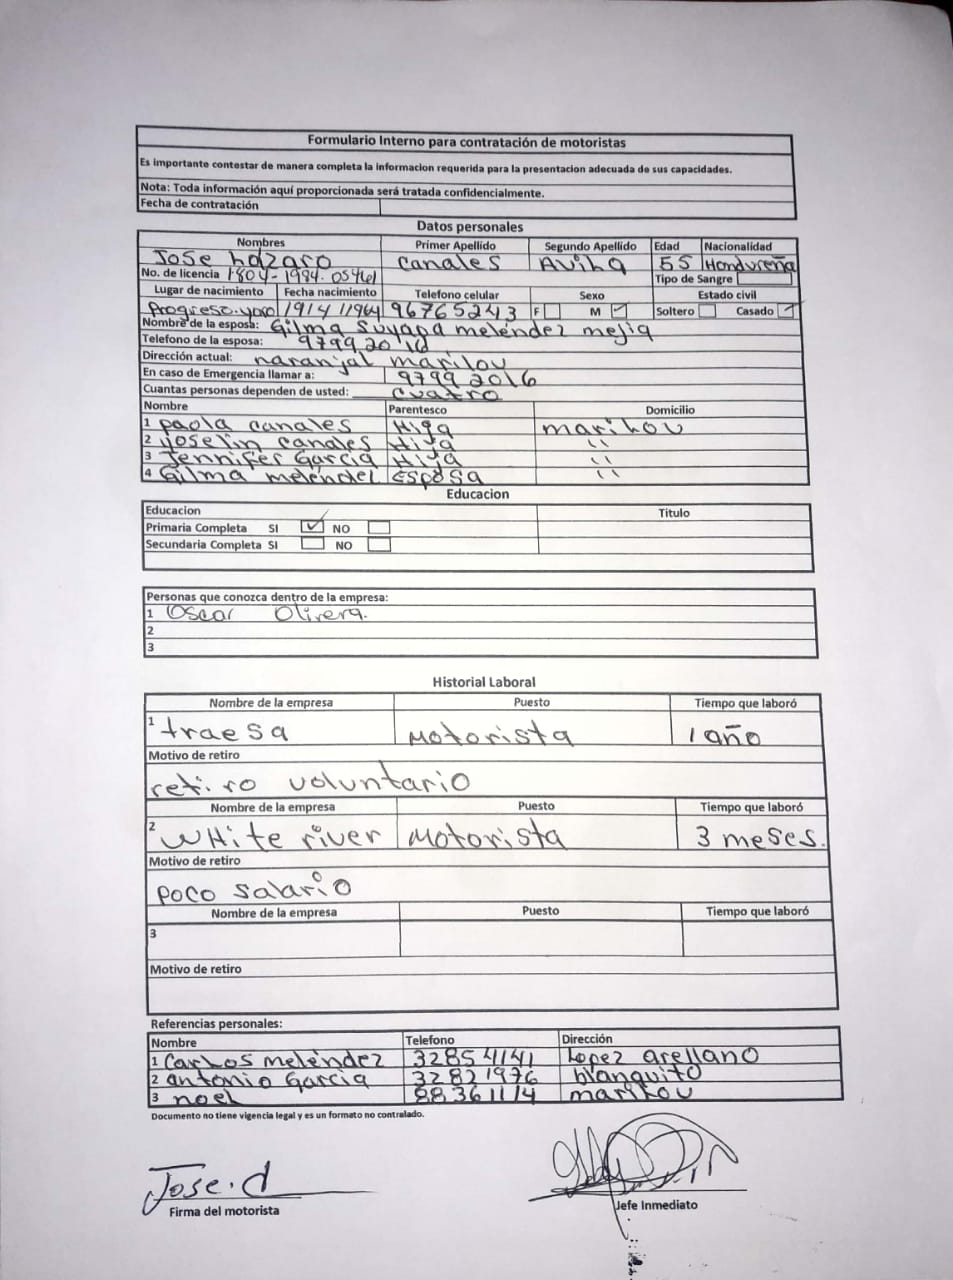 Formulario Interno para contratación de motoristas
Es importante contestar de manera completa la informacion requerida para la presentacion adecuada de sus capacidades.
Nota: Toda información aquí proporcionada será tratada confidencialmente.
Fecha de contratación
Datos personales
Nombres Primer Apellido Segundo Apellido Edad Nacionalidad
Jose Lázaro Canales Avila 55 Hondureña
No. de licencia 1804-1984-05461 Tipo de Sangre
Lugar de nacimiento Fecha nacimiento Telefono celular Sexo Estado civil
Progreso.yoro 19/4/1964 96765243 F M Soltero Casado
Nombre de la esposa: Gilma Suyapa meléndez mejia
Telefono de la esposa: 9799 2016
Dirección actual: naranjal
En caso de Emergencia llamar a: 9799 2016
Cuantas personas dependen de usted: cuatro
Nombre Parentesco Domicilio
1 paola canales Hija
2 Joselin canales Hija ''
3 Jennifer Garcia Hija ''
4 Gilma meléndez Esposa ''
Educacion
Educacion Titulo
Primaria Completa SI NO
Secundaria Completa SI NO
Personas que conozca dentro de la empresa:
1 Oscar Olivera.
2
3
Historial Laboral
Nombre de la empresa Puesto Tiempo que laboró
1 traesa Motorista 1 año
Motivo de retiro
retiro voluntario
Nombre de la empresa Puesto Tiempo que laboró
2 WHite river Motorista 3 meses.
Motivo de retiro
poco salario
Nombre de la empresa Puesto Tiempo que laboró
3
Motivo de retiro
Referencias personales:
Nombre Telefono Dirección
1 Carlos meléndez 32854141 Lopez arellano
2 antonio Garcia 32821976 blanquito
3 noel 88361114
Documento no tiene vigencia legal y es un formato no contralado.
Jose.d
Firma del motorista Jefe Inmediato